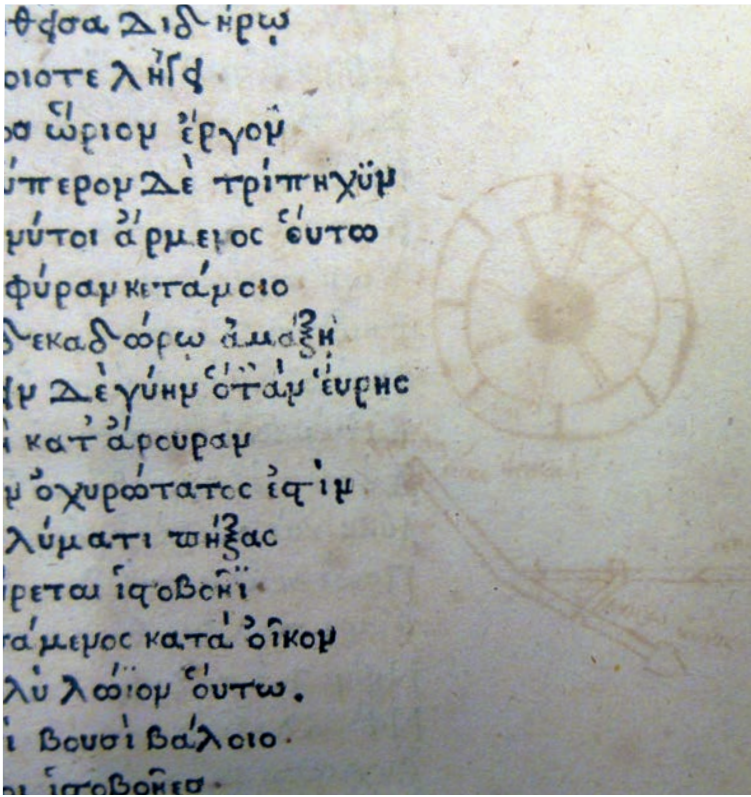 θεῖσα σιδήρῳ
οιοτε λήγει
ὥριον ἔργον
ύπερον δὲ τρίπηχϋν
νύτοι ἄρμενος ὅυτω
φύραν κε τάμοιο
δεκαδώρω ἁμάξῃ
ην δὲ γύην ὅτ' ἂν ἕυρης
ὶ κατ' ἄρουραν
ν ὀχυρώτατος ἐστὶν
λύματι πήξας
ρεται ἱστοβοῆϊ
τάμενος κατὰ ὀῖκον
λὺ λώϊον ὅυτω.
ὶ βουσὶ βάλοιο.
οι ἱστοβοῆεσ.